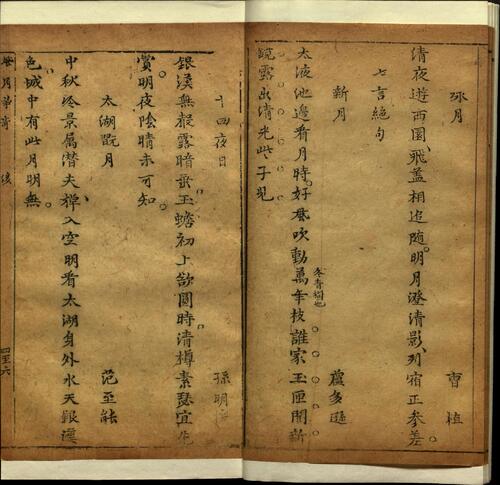 玩月 曹植
清夜遊西園飛盖相追隨明月澄清影列宿正參差
七言絕句
新月 盧多遜
太液池邊看月時好風吹動萬年枝誰家玉匣開新
冬青樹也
鏡露出清光些子児
十四夜月 孫明
銀漢無聲露暗垂玉蟾初上欲圓時清樽素瑟宜先
賞明夜陰晴未可知
太湖翫月 范至能
中秋冷景属潛夫棹入空明看太湖身外水天銀
色城中有此月明無
四至六